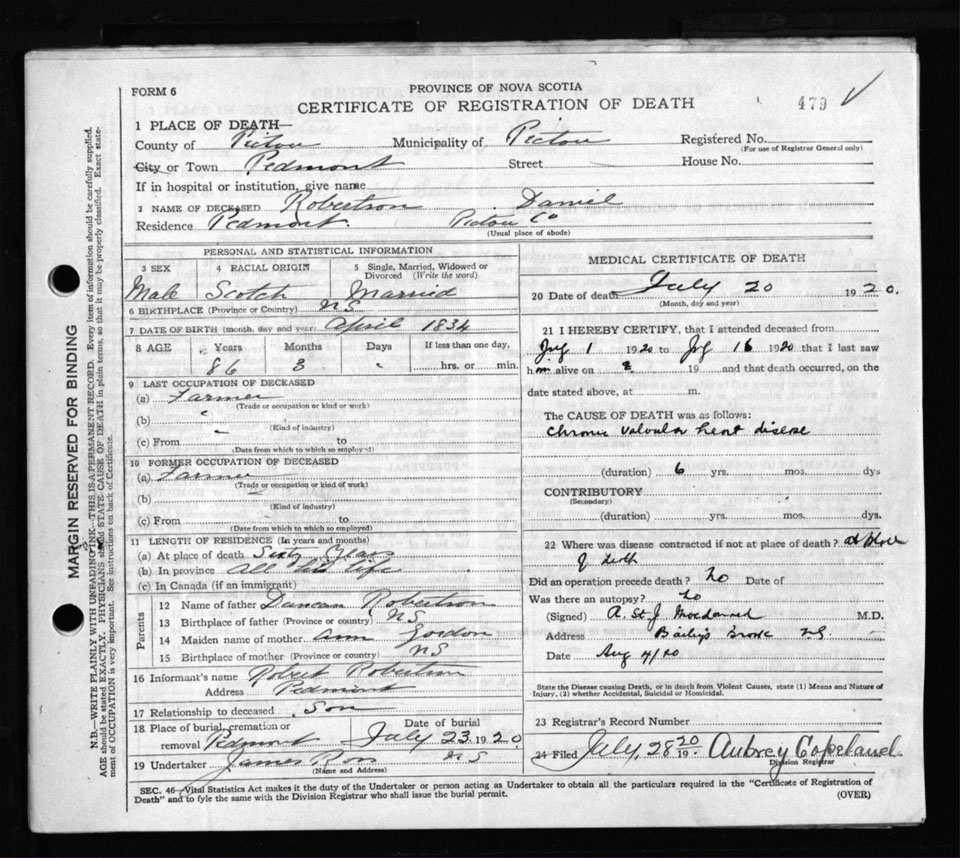 FORM 6
PROVINCE OF NOVA SCOTIA
CERTIFICATE OF REGISTRATION OF DEATH
479 ✓
1 PLACE OF DEATH—
County of Pictou Municipality of Pictou Registered No.
(For use of Registrar General only)
City or Town Piedmont Street House No.
If in hospital or institution, give name
2 NAME OF DECEASED Robertson Daniel
Residence Piedmont. Pictou Co
(Usual place of abode)
PERSONAL AND STATISTICAL INFORMATION
3 SEX 4 RACIAL ORIGIN 5 Single, Married, Widowed or Divorced (Write the word)
Male Scotch Married
6 BIRTHPLACE (Province or Country) NS
7 DATE OF BIRTH (month, day and year) April 1834
8 AGE Years Months Days If less than one day,
86 3 hrs. or min.
9 LAST OCCUPATION OF DECEASED
(a) Farmer
(Trade or occupation or kind or work)
(b)
(Kind of industry)
(c) From to
(Date from which to which so employed)
10 FORMER OCCUPATION OF DECEASED
(a) Farmer
(Trade or occupation or kind of work)
(b)
(Kind of industry)
(c) From to
(Date from which to which so employed)
11 LENGTH OF RESIDENCE (In years and months)
(a) At place of death Sixty Years
(b) In province All his life
(c) In Canada (if an immigrant)
Parents
12 Name of father Duncan Robertson
13 Birthplace of father (Province or country) NS
14 Maiden name of mother Ann Gordon
15 Birthplace of mother (Province or country) NS
16 Informant's name Robert Robertson
Address Piedmont
17 Relationship to deceased Son
18 Place of burial, cremation or removal Piedmont Date of burial July 23 1920
19 Undertaker James Ross NS
(Name and Address)
MEDICAL CERTIFICATE OF DEATH
20 Date of death July 20 1920.
(Month, day and year)
21 I HEREBY CERTIFY, that I attended deceased from
July 1 1920 to July 16 1920 that I last saw
him alive on 19 and that death occurred, on the
date stated above, at m.
The CAUSE OF DEATH was as follows:
Chronic Valvular heart disease
(duration) 6 yrs. mos. dys
CONTRIBUTORY
(Secondary)
(duration) yrs. mos. dys.
22 Where was disease contracted if not at place of death? at place
of death
Did an operation precede death? No Date of
Was there an autopsy? No
(Signed) A. St. J. M.D.
Address Baileys Brook NS.
Date Aug 4/20
State the Disease causing Death, or in death from Violent Causes, state (1) Means and Nature of
Injury, (2) whether Accidental, Suicidal or Homicidal.
23 Registrar's Record Number
24 Filed July, 28 1920 Aubrey Copeland
Division Registrar
SEC. 46—Vital Statistics Act makes it the duty of the Undertaker or person acting as Undertaker to obtain all the particulars required in the "Certificate of Registration of
Death" and to fyle the same with the Division Registrar who shall issue the burial permit.
(OVER)
MARGIN RESERVED FOR BINDING
N.B.—WRITE PLAINLY WITH UNFADING INK—THIS IS A PERMANENT RECORD. Every item of information should be carefully supplied.
AGE should be stated EXACTLY. PHYSICIANS should STATE CAUSE OF DEATH in plain terms, so that it may be properly classified. Exact state-
ment of OCCUPATION is very important. See instructions on back of Certificate.